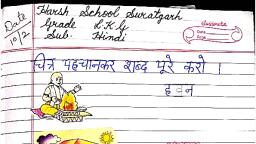 Harsh School Suratgarh
Date 10/2
Grade L.K.G
Sub. Hindi
classmate
Date
Page
चित्र पहचानकर शब्द पूरे करो ।
ह_न